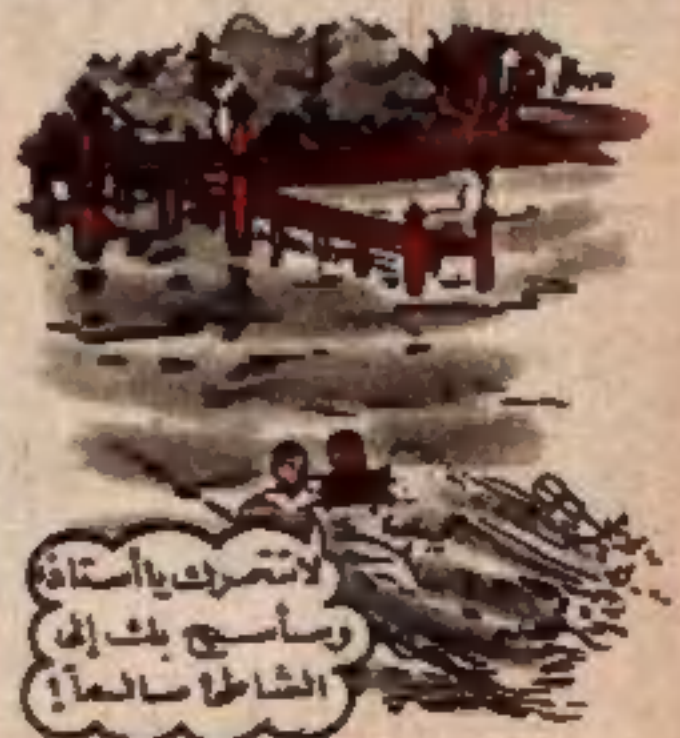 لا تتحرك يا أستاذ
وسأسبح بك إلى
الشاطئ سالماً!